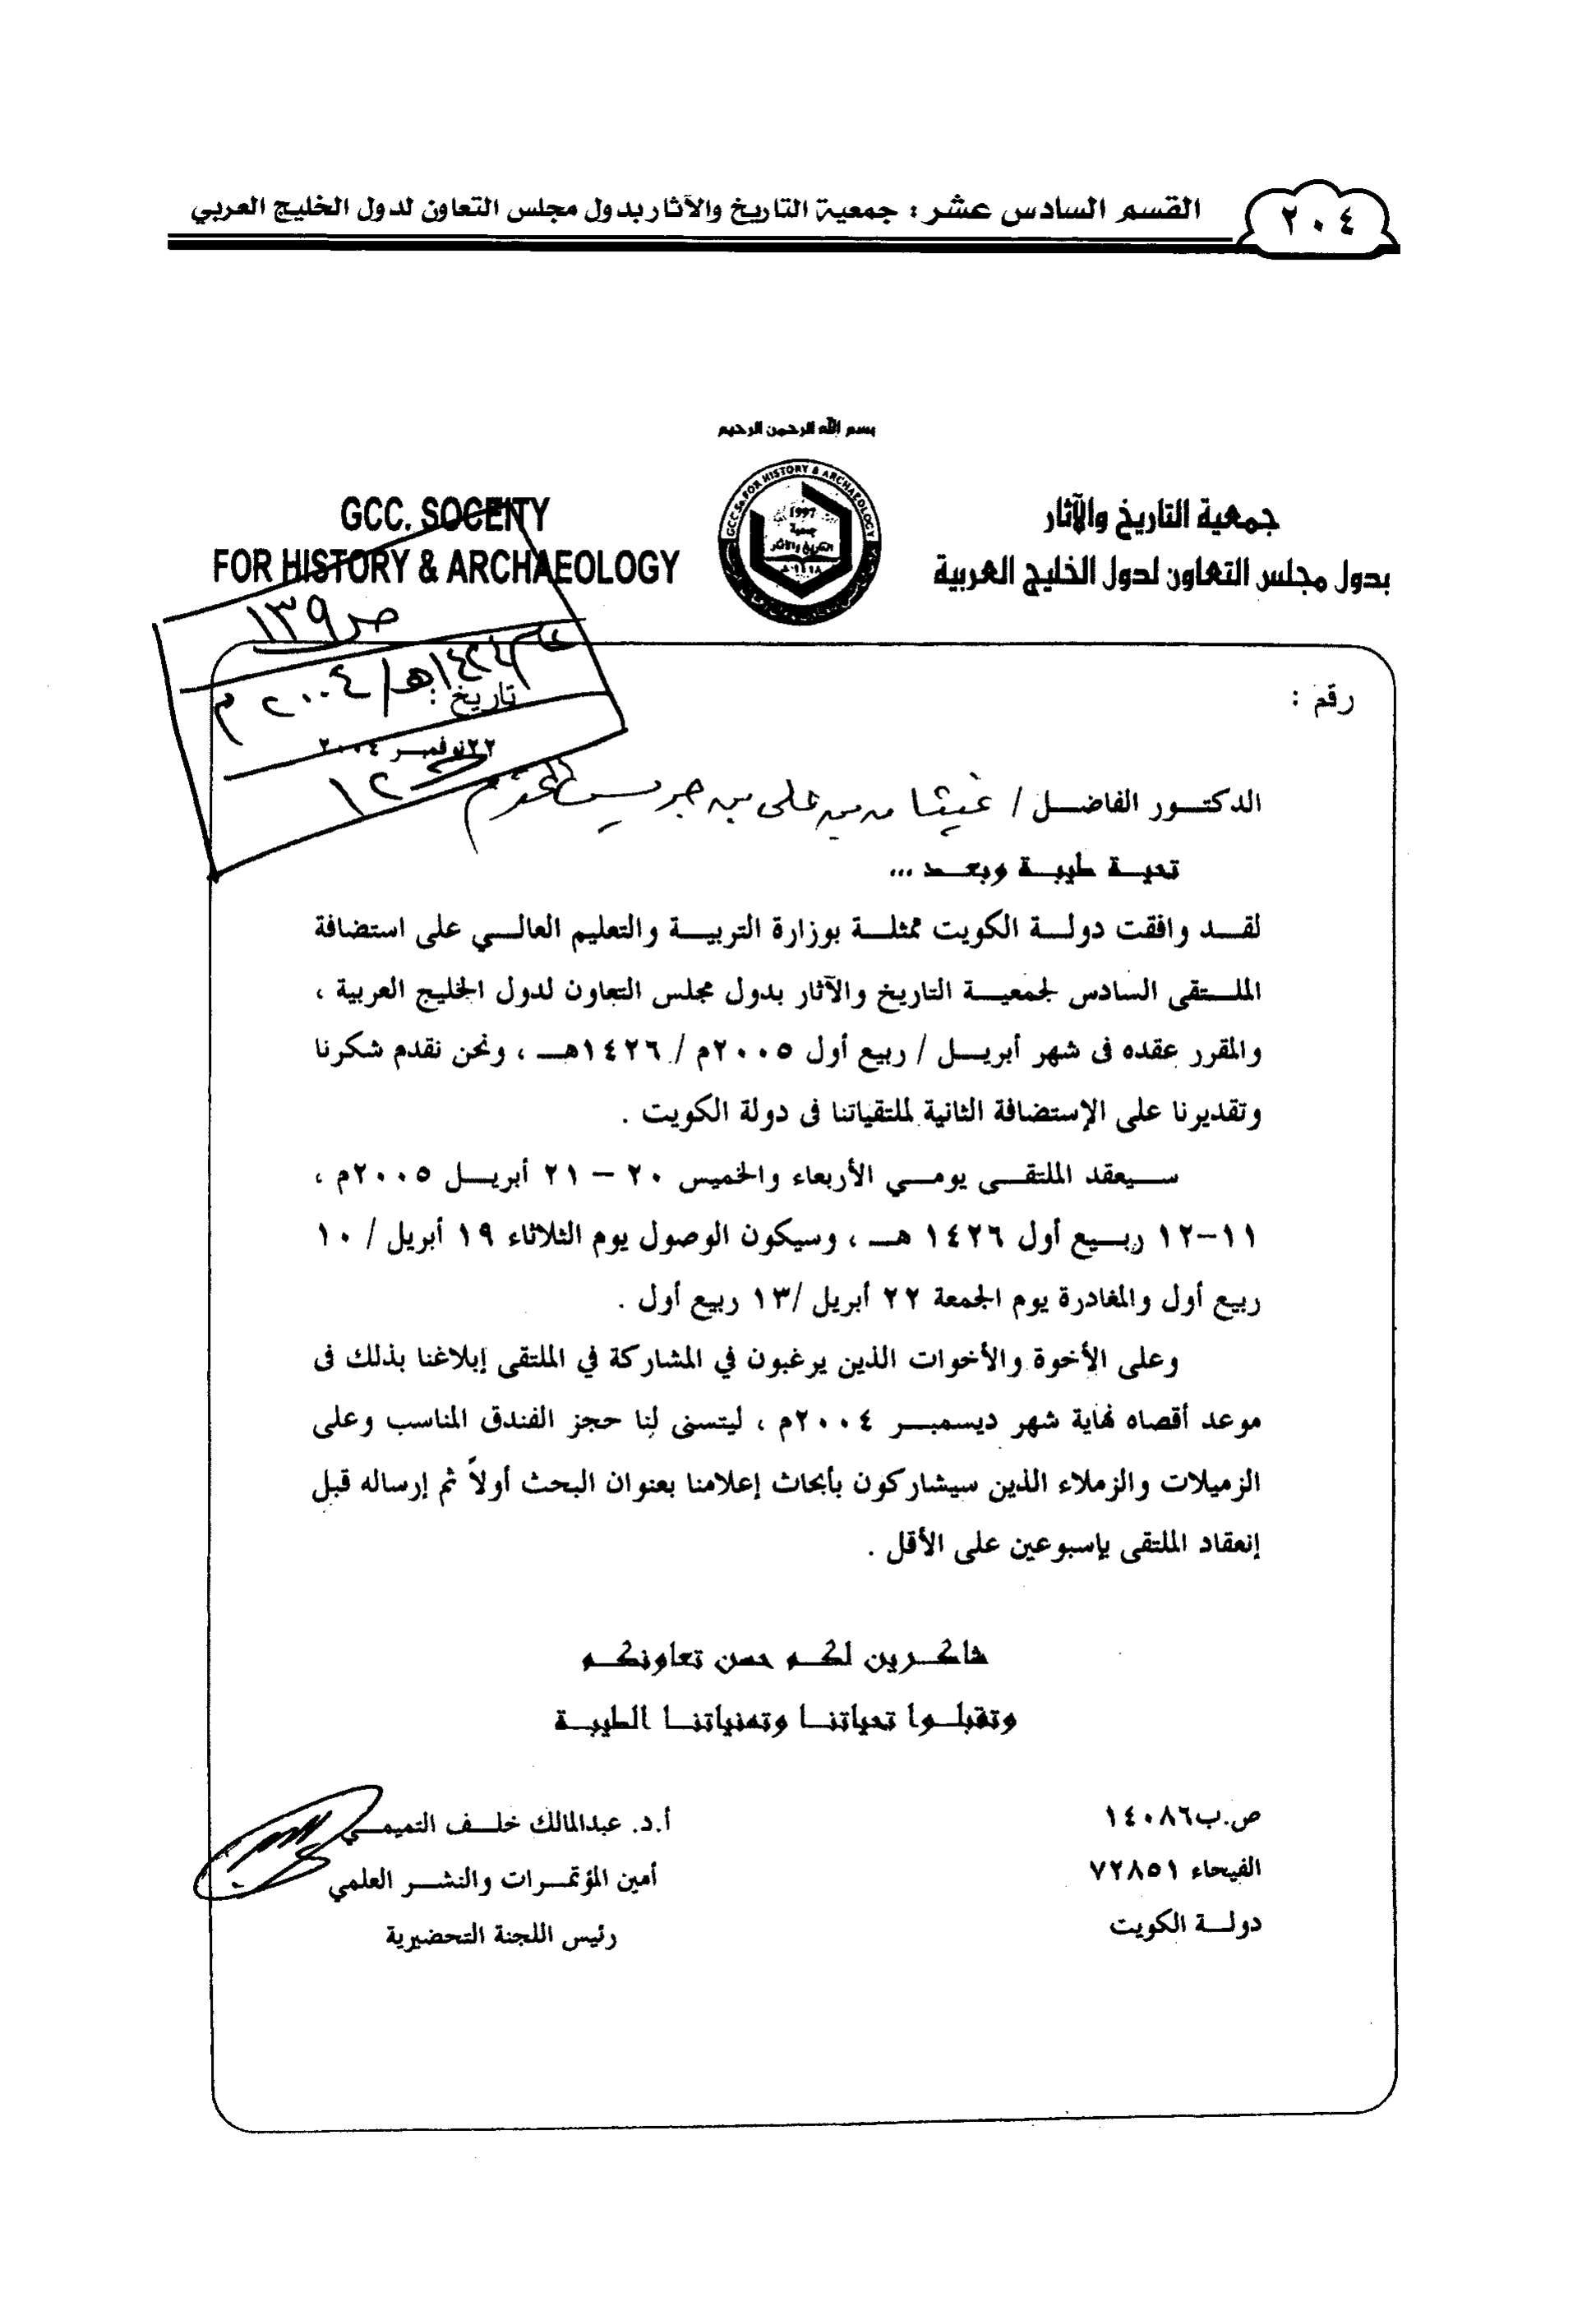 ٢٠٤
القسم السادس عشر : جمعية التاريخ والآثار بدول مجلس التعاون لدول الخليج العربي
بسم الله الرحمن الرحيم
جمعية التاريخ والآثار
بدول مجلس التعاون لدول الخليج العربية
GCC.So.FOR HISTORY & ARCHAEOLOGY
1997
جمعية
التاريخ والآثار
١٤١٨هـ
GCC. SOCEITY
FOR HISTORY & ARCHAEOLOGY
ص ١٣٩
هـ / ٢٠٠٤ م
رقم :
تاريخ :
٢٢ نوفمبر ٢٠٠٤
الدكتـور الفاضـل / غيثان بن علي بن جريس المحترم
تحيـة طيبـة وبعـد ...
لقـد وافقت دولـة الكويت ممثلـة بوزارة التربيـة والتعليم العالـي على استضافة
الملـتقى السادس لجمعيـة التاريخ والآثار بدول مجلس التعاون لدول الخليج العربية ،
والمقرر عقده فى شهر أبريـل / ربيع أول ٢٠٠٥م / ١٤٢٦هـ ، ونحن نقدم شكرنا
وتقديرنا على الإستضافة الثانية لملتقياتنا فى دولة الكويت .
سـيعقد الملتقـى يومـي الأربعاء والخميس ٢٠ – ٢١ أبريـل ٢٠٠٥م ،
١١–١٢ ربـيع أول ١٤٢٦ هـ ، وسيكون الوصول يوم الثلاثاء ١٩ أبريل / ١٠
ربيع أول والمغادرة يوم الجمعة ٢٢ أبريل /١٣ ربيع أول .
وعلى الأخوة والأخوات الذين يرغبون في المشاركة في الملتقى إبلاغنا بذلك فى
موعد أقصاه نهاية شهر ديسمبـر ٢٠٠٤م ، ليتسنى لنا حجز الفندق المناسب وعلى
الزميلات والزملاء الذين سيشاركون بأبحاث إعلامنا بعنوان البحث أولاً ثم إرساله قبل
إنعقاد الملتقى بإسبوعين على الأقل .
شاكـرين لكـم حسن تعاونكـم
وتقبلـوا تحياتنـا وتمنياتنـا الطيبـة
ص.ب١٤٠٨٦
الفيحاء ٧٢٨٥١
دولـة الكويت
أ.د. عبدالمالك خلـف التميمـي
أمين المؤتمـرات والنشـر العلمي
رئيس اللجنة التحضيرية